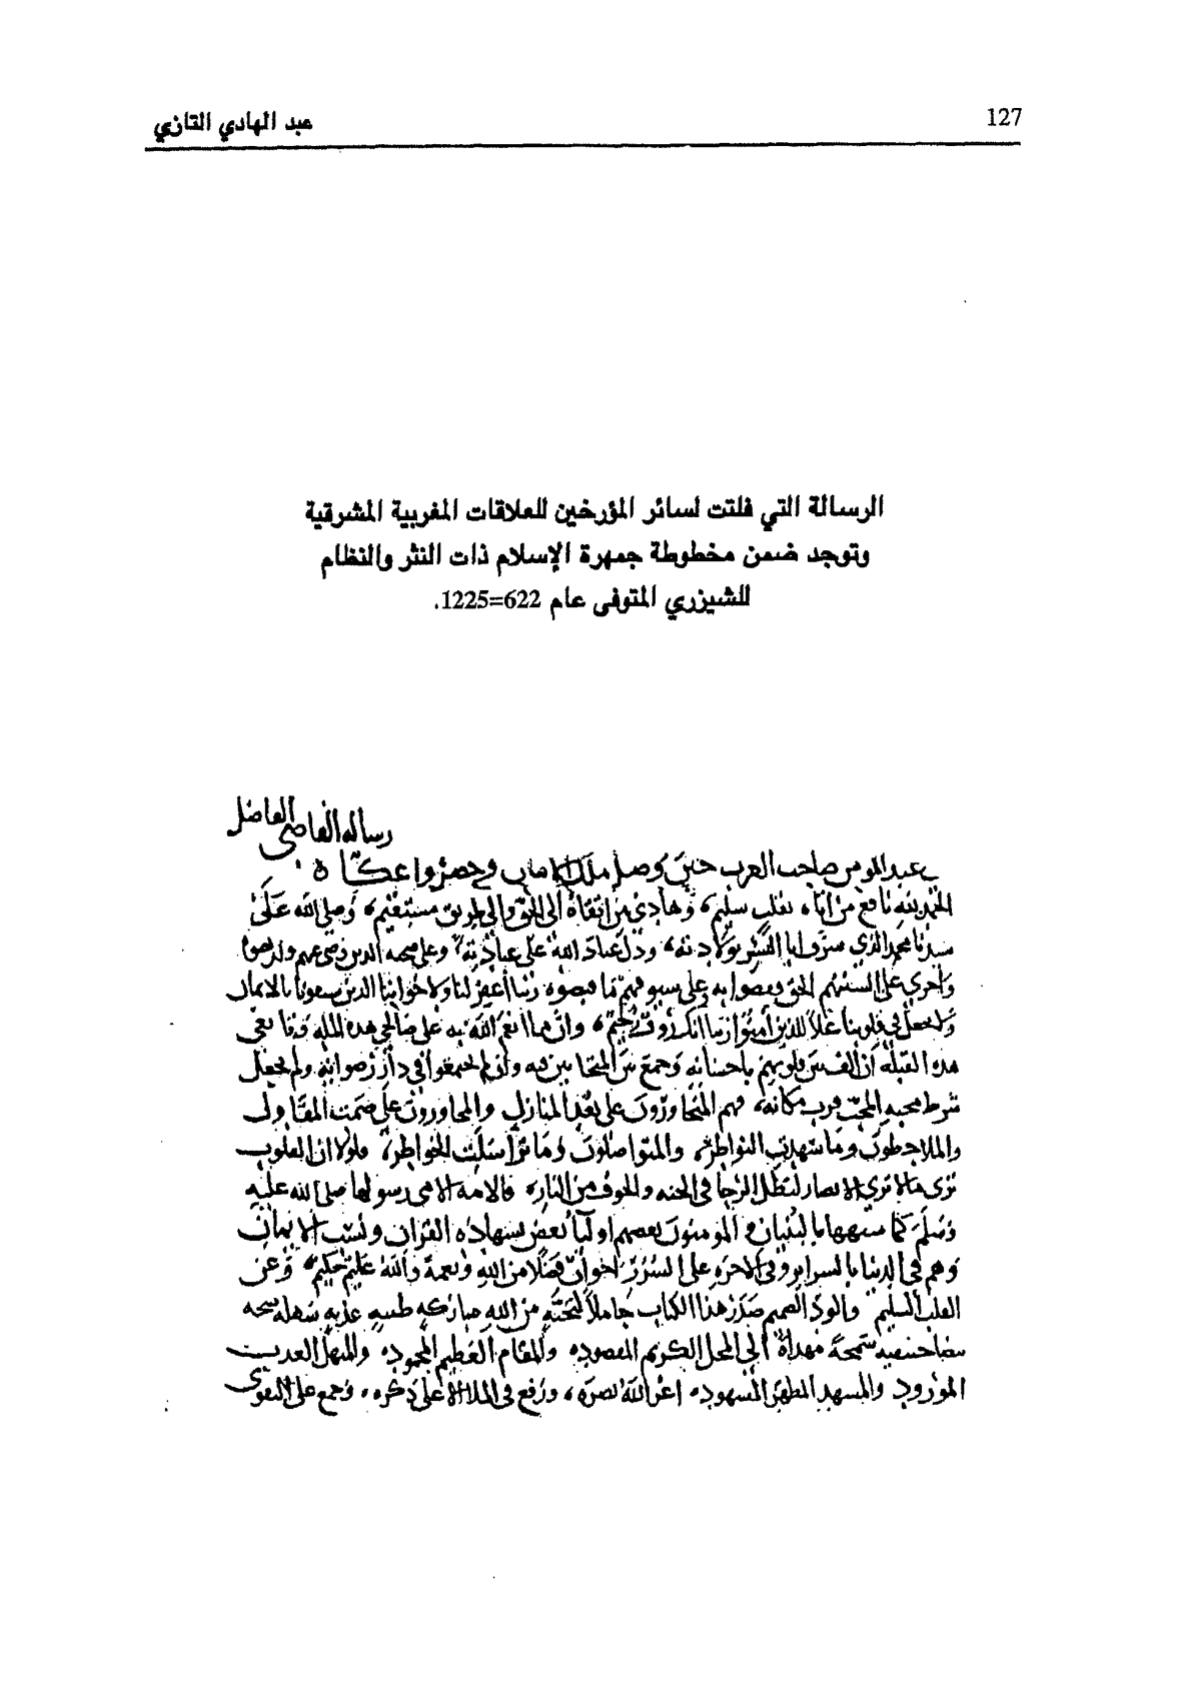 127
عبد الهادي التازي
الرسالة التي فلتت لسائر المؤرخين للعلاقات المغربية المشرقية
وتوجد ضمن مخطوطة جمهرة الإسلام ذات النثر والنظام
للشيزري المتوفى عام 622=1225.
رساله القاضى الفاضل
عبد المومن صاحب العرب حين وصل ملك وحصروا عكا
الحمد لله نافع من اتاه بقلب سليم، وهادى من اتقاه الى الحق والى طريق مستقيم، وصلى الله على
سيدنا محمد الذي شرف ودل عباد الله على عبادته، وعلى صحبه الدين رضى عنهم ورضوا
واجرى على السنتهم الحق وعلى سيوفهم ما ربنا اغفر لنا ولاخواننا الدين سبقونا بالايمان
ولا تجعل فى قلوبنا غلا للذين امنوا ربنا انك روف رحيم، وان مما انعم الله به على صالحي هذه المله
هده القبله ان الف بين قلوبهم باحسانه وجمع بين المتحابين فيه وان لم يجمعوا في دار رضوانه ولم يجعل
شرط محبه المحب قرب مكانه، فهم المتجاورون على بعد المنازل والمتحاورون على صمت المقاول
والملاحظون وما شهدت النواظر، والمتواصلون وما تراسلت الخواطر، فلولا ان القلوب
ترى مالا ترى الابصار لبطل الرجا فى الجنه والخوف من النار، فالامه الامى رسولها صلى الله عليه
وسلم كما شبهها بالبنيان والمومنون بعضهم اوليا بعض بشهاده القران ونسب الايمان
وهم فى الدنيا بالسراير وفى الاخره على السرر اخوان فضلا من الله ونعمة والله عليم حكيم، وعن
القلب السليم والود الصميم صدر هذا الكتاب حاملا لتحية من الله مباركه طيبه عذبه سهله سمحه
سمحة مهداة الى المحل الكريم المقصود، والمقام العظيم المحمود، والمنهل العد
المورود والمشهد المطهر المشهود، اعز الله نصره، ورفع فى الملا الاعلى ذكره، وجمع على التقوى